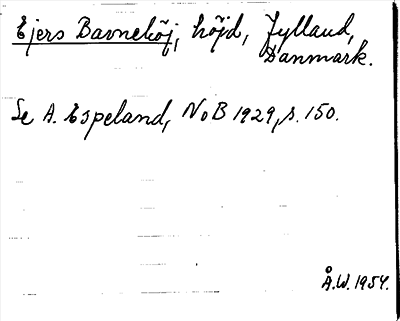 Ejers Bavnehöj, höjd, Jylland,
Danmark.
Se A. Espeland, NoB 1929, s. 150.
Å.W. 1954.